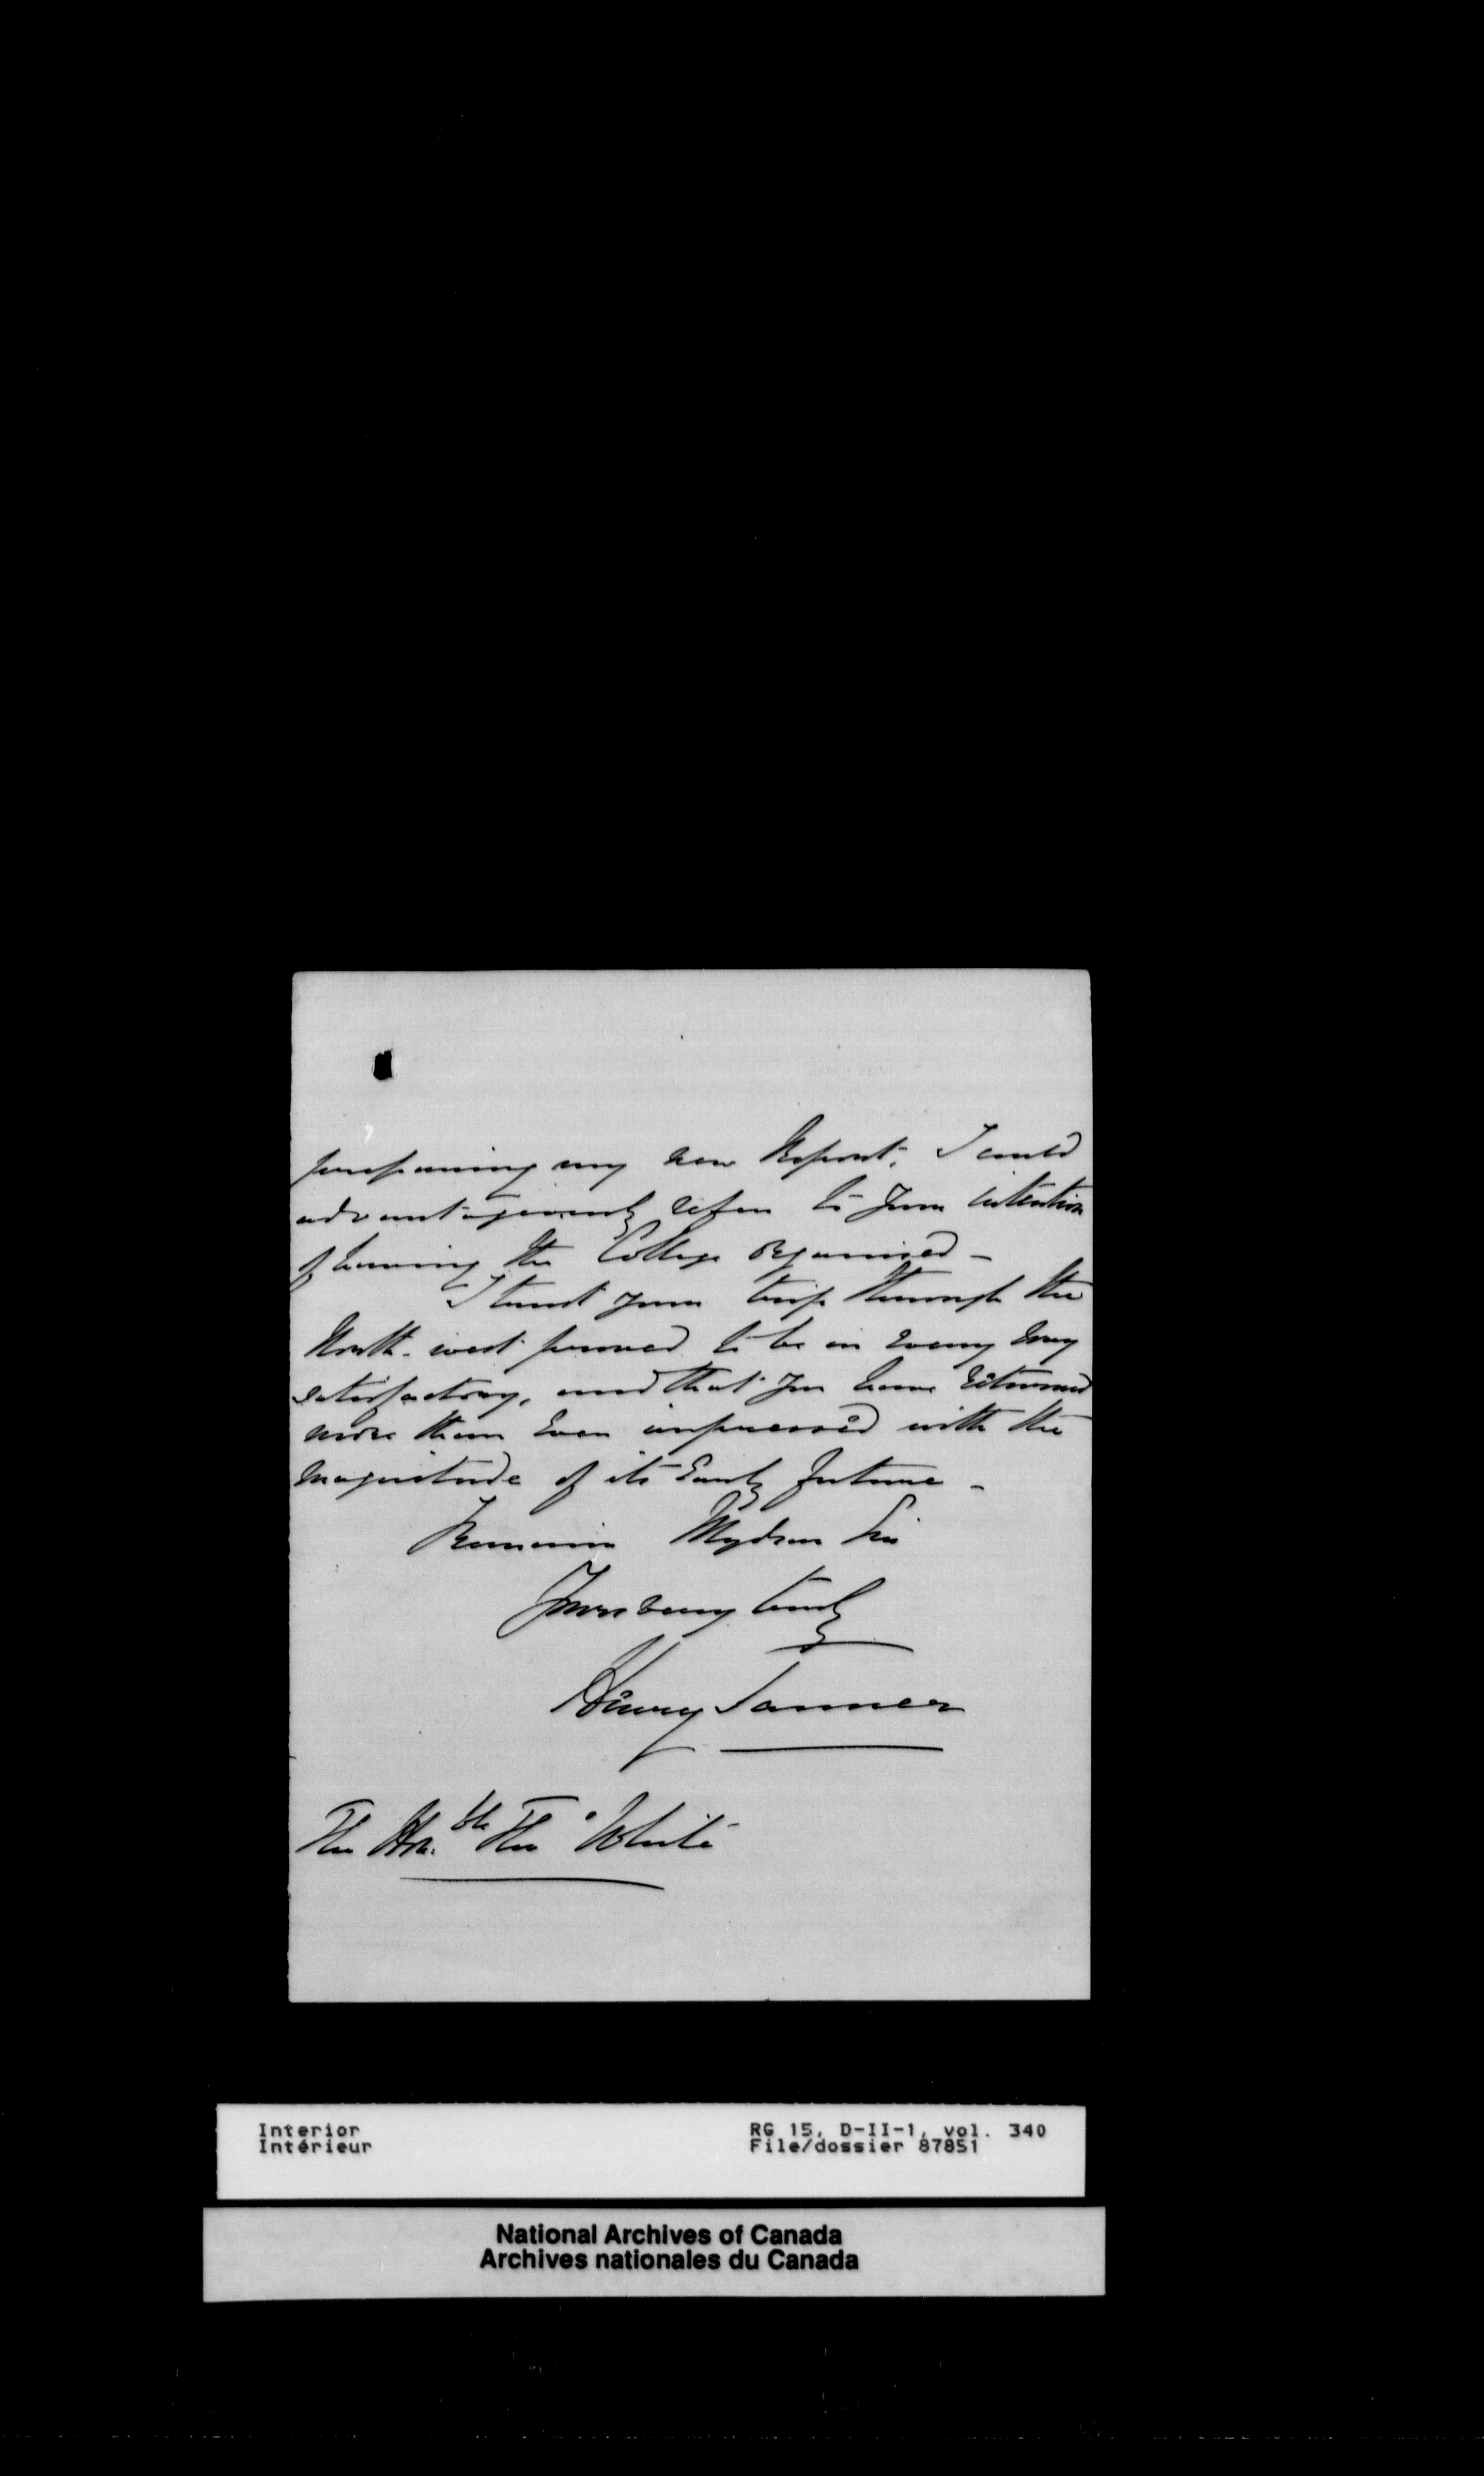 preparing my new Report, I could
advantageously refer to your intention
of having the College organised -
I trust your trip through the
North-west proved to be in every way
satisfactory, and that you have returned
more than ever impressed with the
magnitude of its early future -
Remain My dear Sir
Yours very truly
Henry Tanner
The Hon.ble Thos White
Interior
Intérieur
RG 15, D-II-1, vol. 340
File/dossier 87851
National Archives of Canada
Archives nationales du Canada